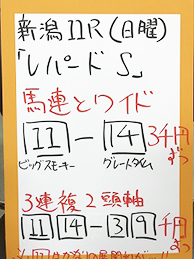 新潟11R(日曜)
「レパードS」
馬連とワイド
11-14 3千円ずつ
ビッグスモーキー グレートタイム
3連複2頭軸
11 14-3 9 千円